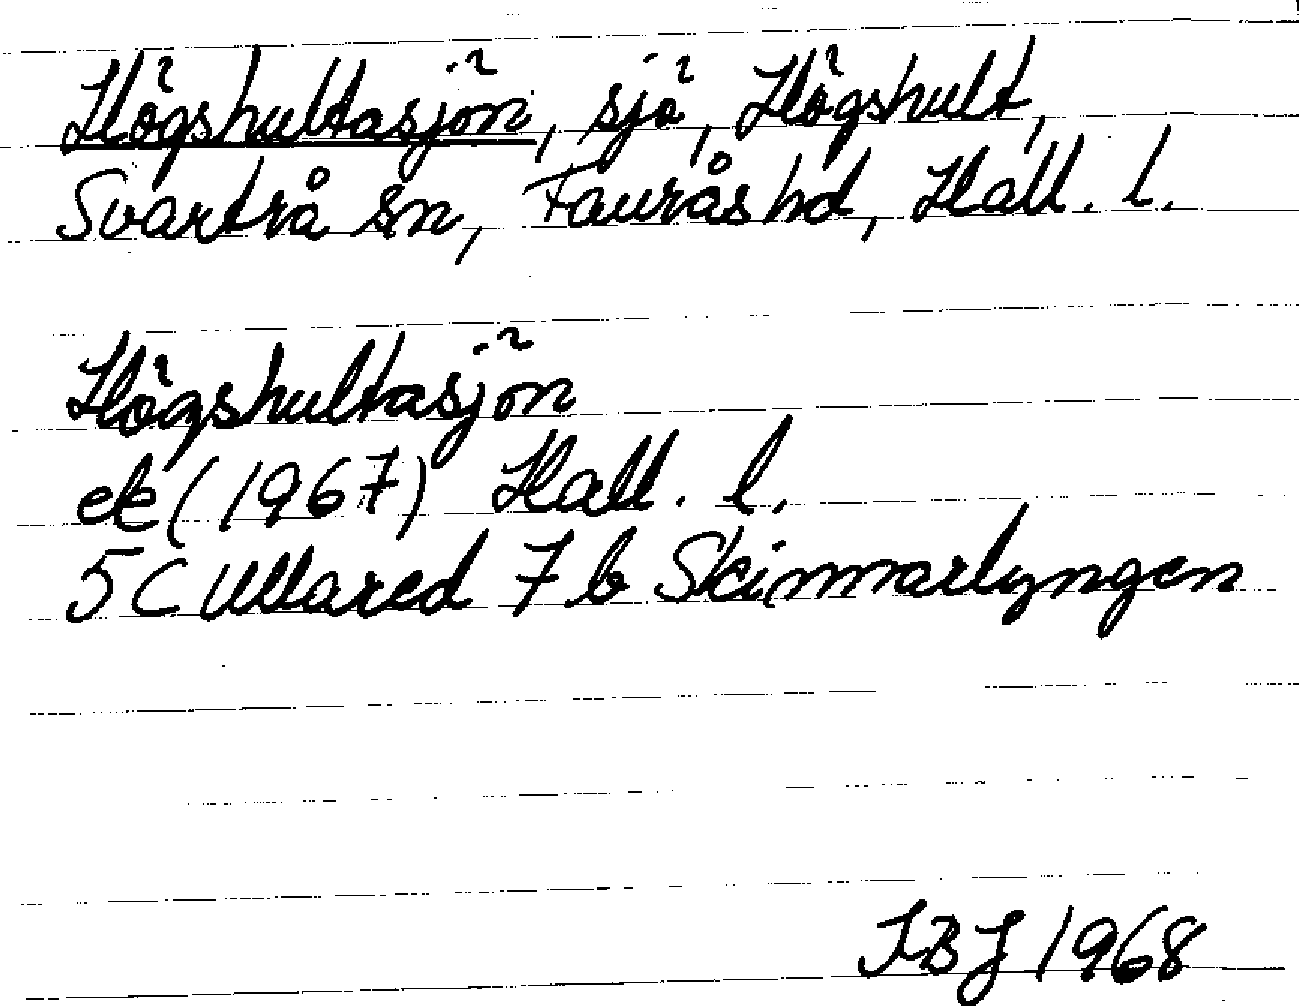 Högshultasjön, sjö, Högshult,
Svartrå sn, Faurås hd, Hall. l.
Högshultasjön
ek (1967) Hall. l.
5C Ullared 7 b Skinnarlyngen
IBJ 1968